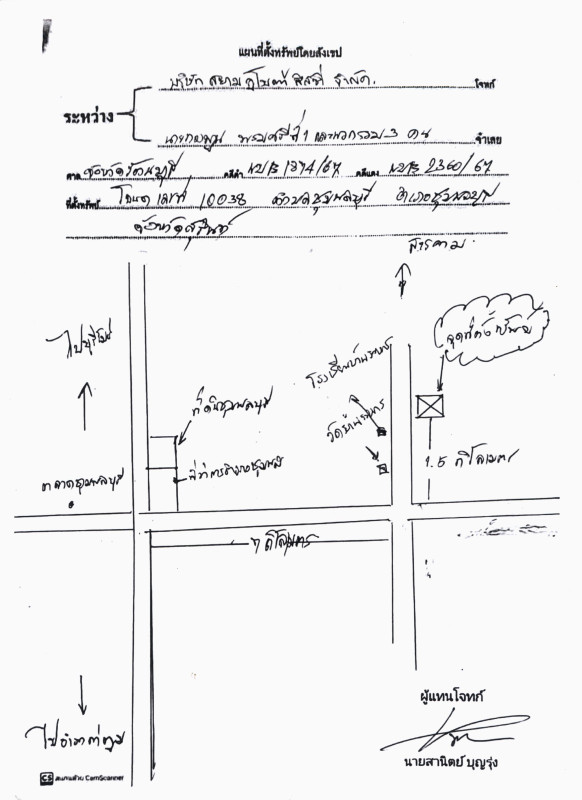 แผนที่ตั้งทรัพย์โดยสังเขป
บริษัท สยาม จำกัด. โจทก์
ระหว่าง
ที่ 1 และพวกรวม 3 คน จำเลย
ศาล จังหวัดรัตนบุรี คดีดำ ผบE 1874/67 คดีแดง ผบE 2360/67
ที่ตั้งทรัพย์ โฉนดเลขที่ 10038 ตำบลชุมพลบุรี อำเภอชุมพลบุรี
จังหวัดสุรินทร์
สารคาม
ไปบุรีรัมย์
จุดที่ตั้งทรัพย์
ที่ดินชุมพลบุรี
ที่ว่าการอำเภอชุมพล
ตลาดชุมพลบุรี
1.5 กิโลเมตร
7 กิโลเมตร
ไปอำเภอท่าตูม
ผู้แทนโจทก์
นายสานิตย์ บุญรุ่ง
CS สแกนด้วย CamScanner